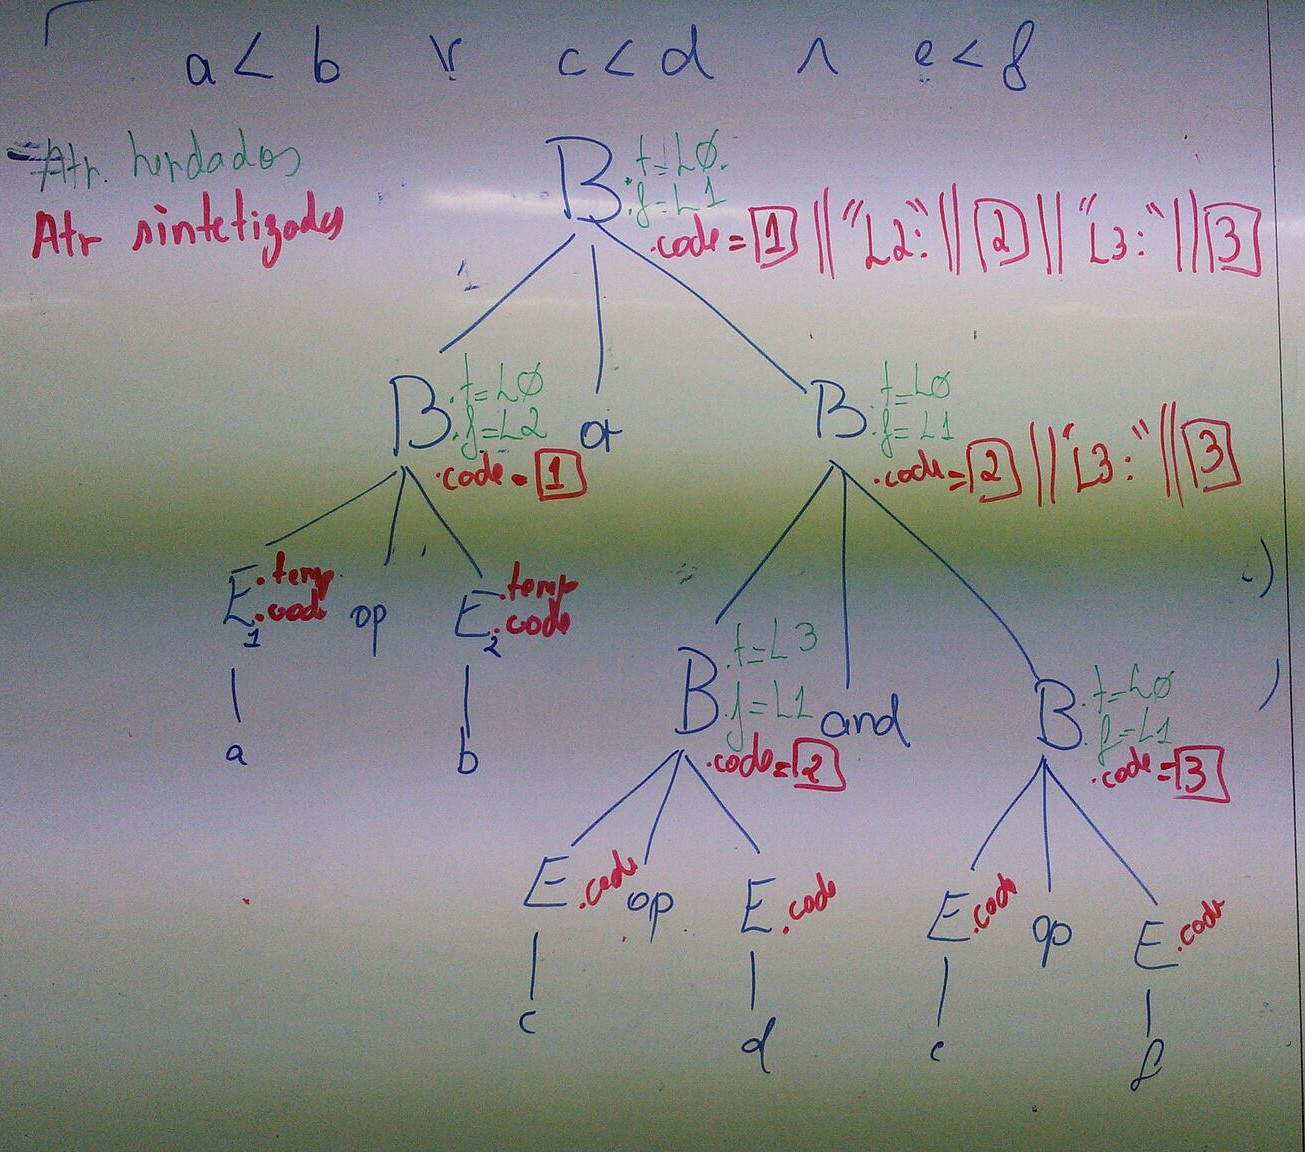 a < b ∨ c < d ∧ e < f
Atr. herdados
Atr sintetizados
B .t=LØ
.f=L1
.code = 1 || "L2:" || 2 || "L3:" || 3
1
B .t=LØ
.f=L2
.code = 1
or
B .t=LØ
.f=L1
.code = 2 || "L3:" || 3
E1 .temp
.code
op
E2 .temp
.code
a
b
B .t=L3
.f=L1
.code=2
and
B .t=LØ
.f=L1
.code=3
E .code op E .code
E .code op E .code
c
d
e
f